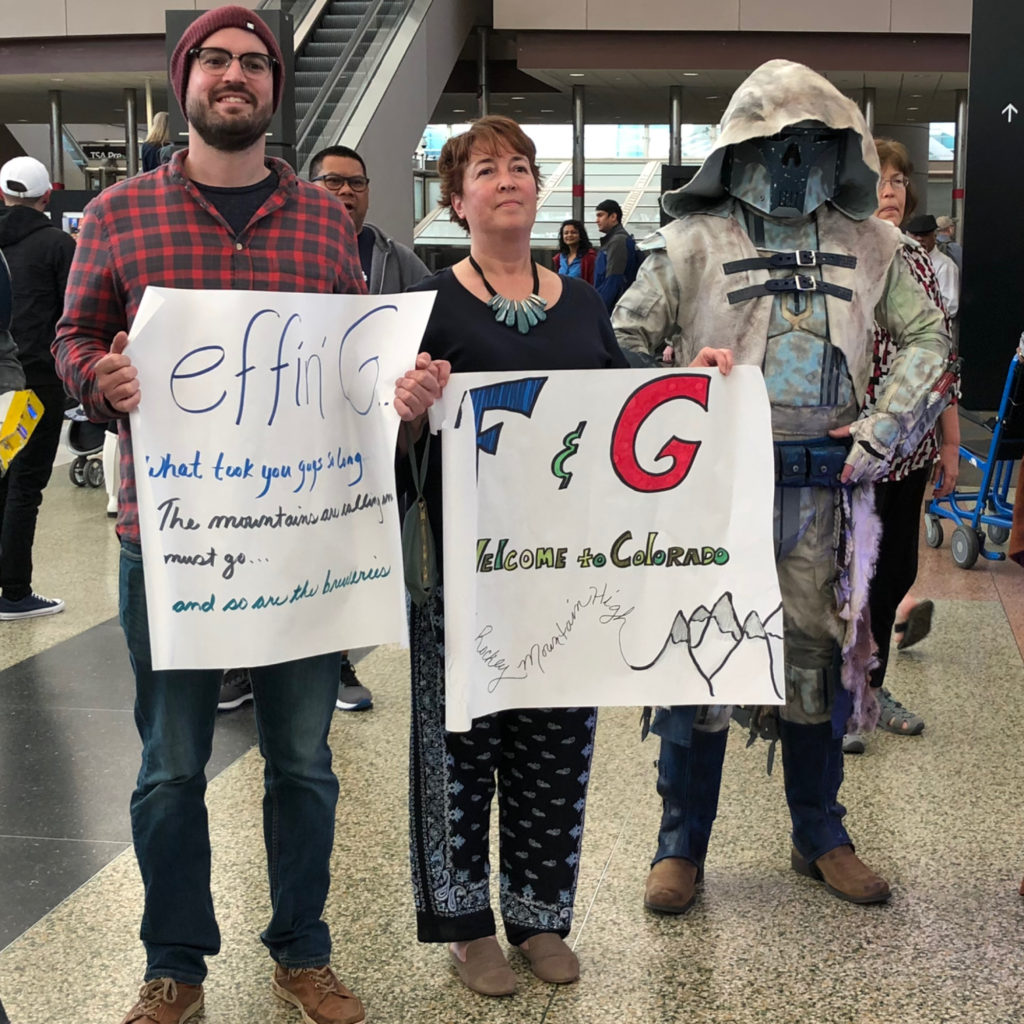 TSA Pre
effin' G.
What took you guys so long
The mountains are calling
must go...
and so are the breweries
F & G
Welcome to Colorado
Rockey Mountain High